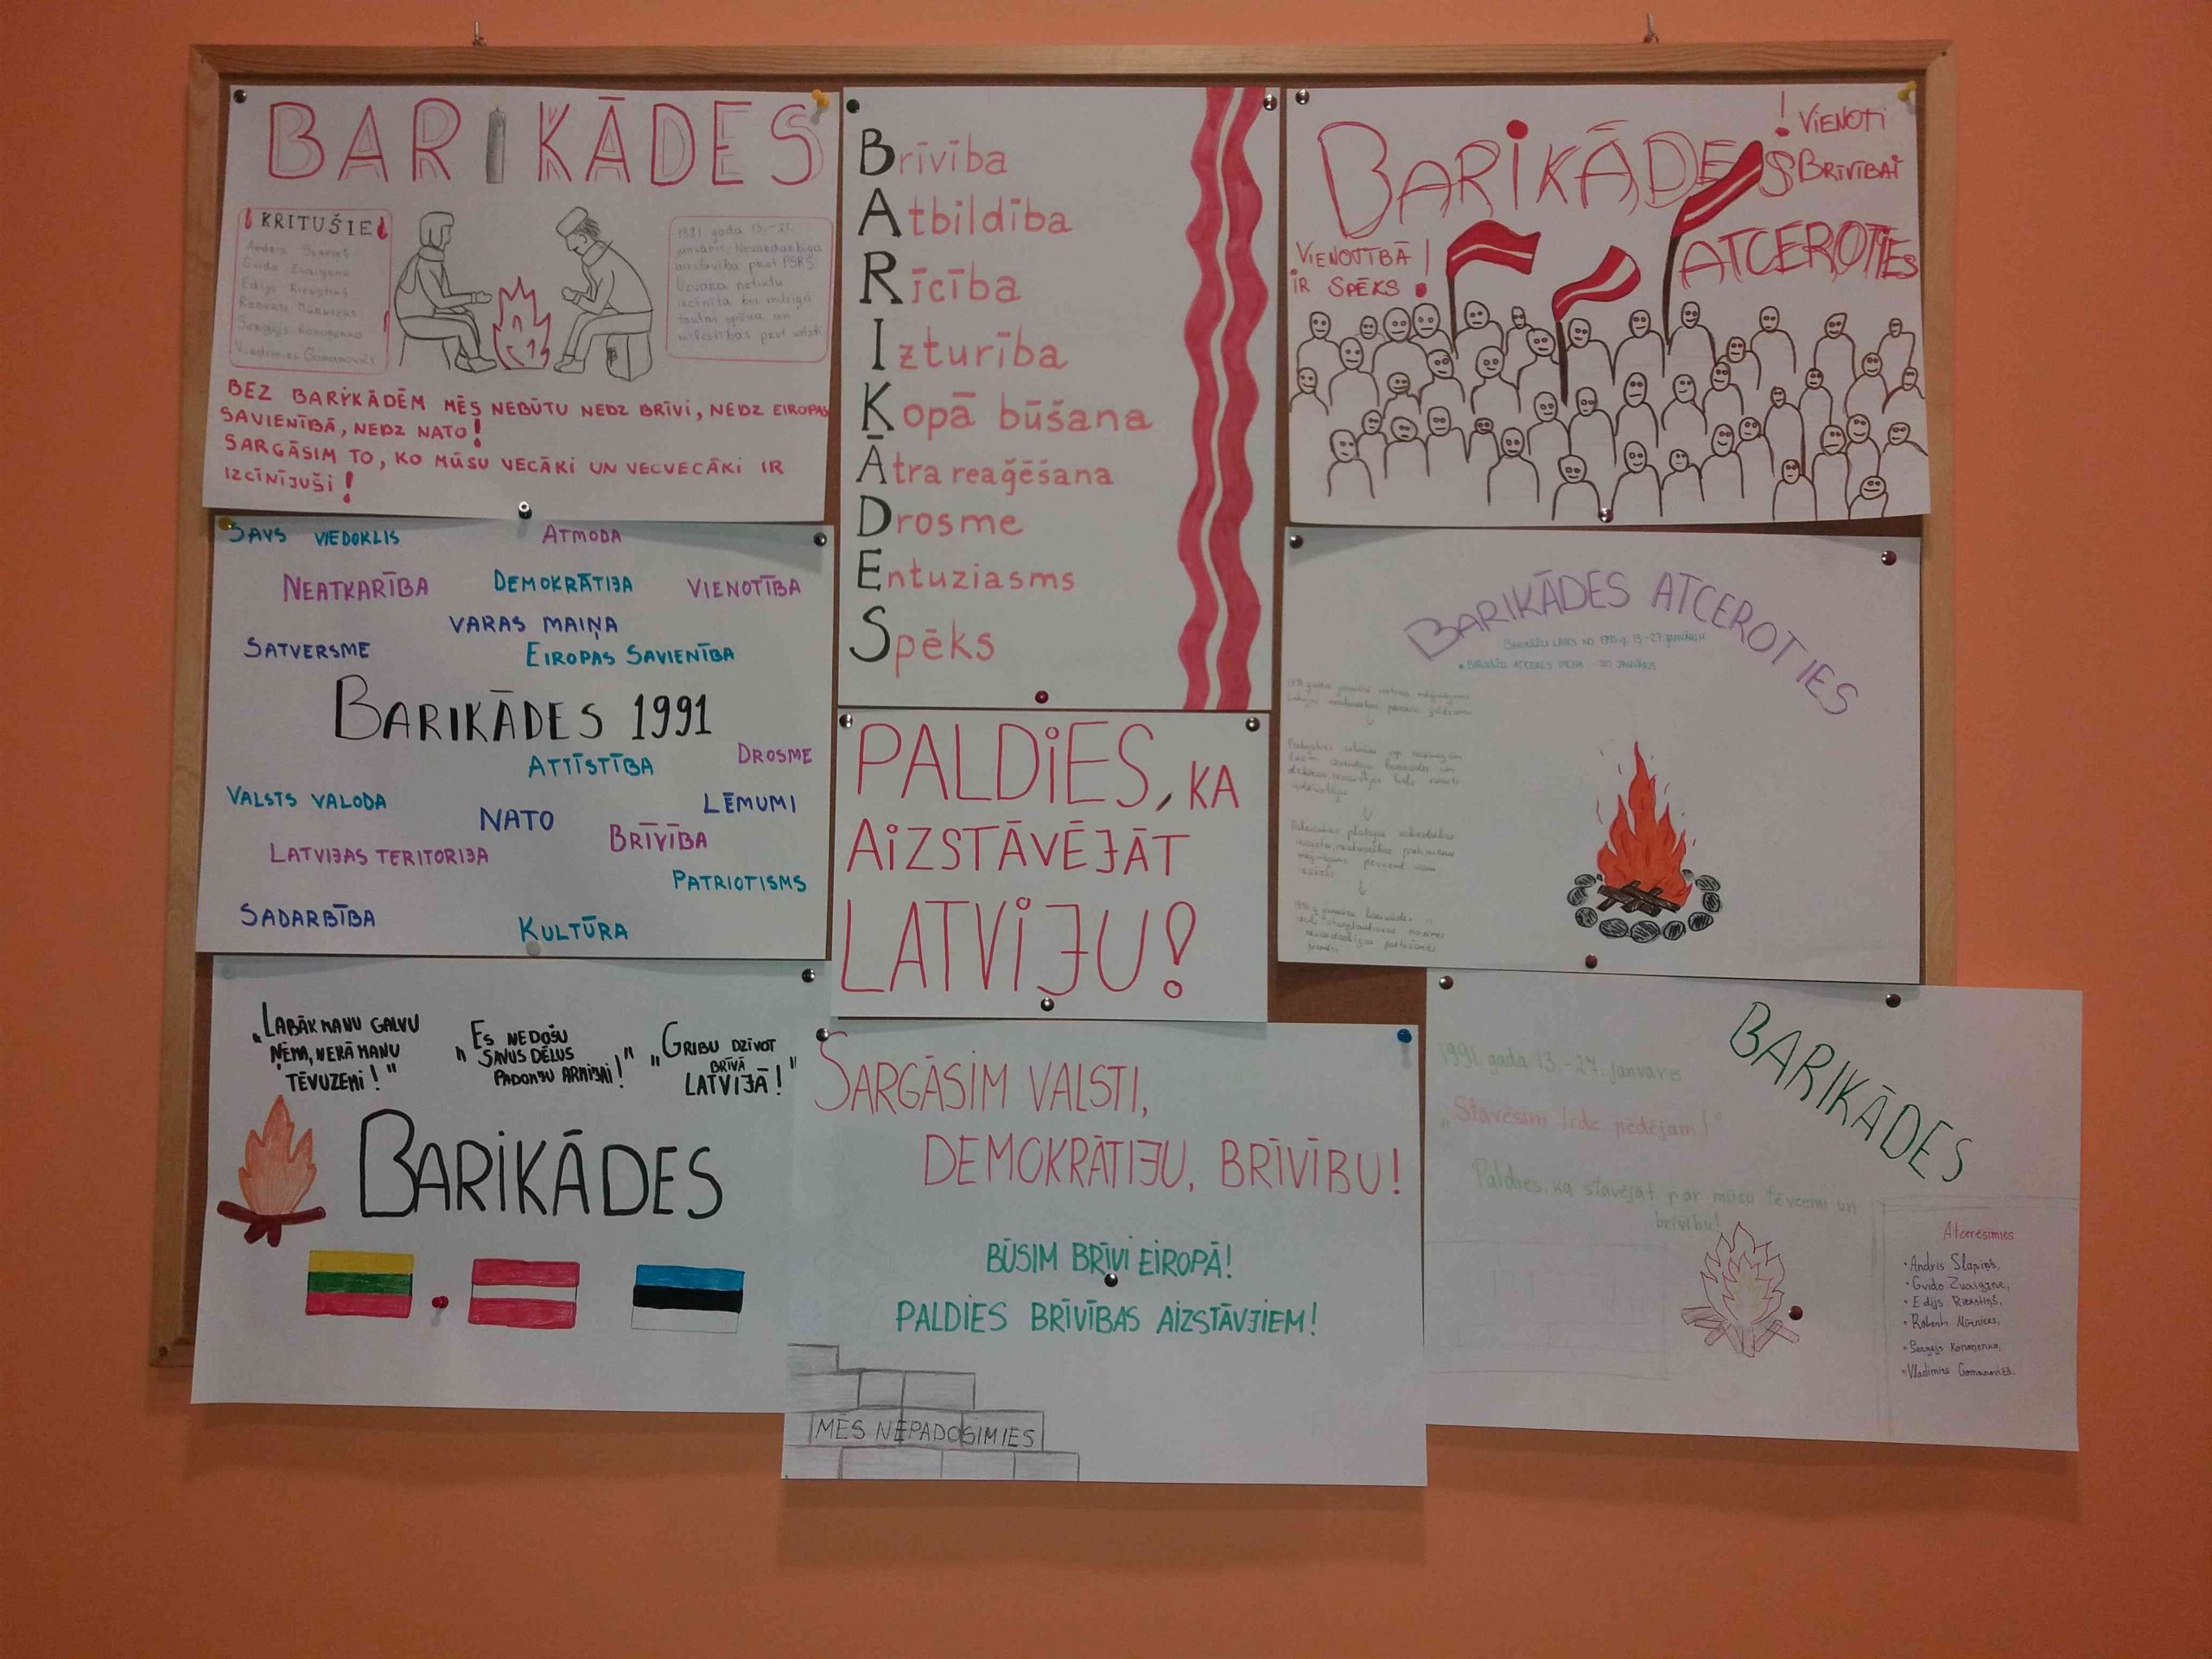 BARIKĀDES
KRITUŠIE
Gvido Zvaigzne
Edijs Riekstiņš
Sergejs Konoņenko
Vladimirs Gomanovičs
1991. gada 13.-27.
janvāris. Nevardarbīga
aizstāvība pret PSRS.
Uzvara netiktu
izcīnīta bez milzīgā
tautas spēka un
mīlestības pret valsti
BEZ BARIKĀDĒM MĒS NEBŪTU NEDZ BRĪVI, NEDZ EIROPAS
SAVIENĪBĀ, NEDZ NATO!
SARGĀSIM TO, KO MŪSU VECĀKI UN VECVECĀKI IR
IZCĪNĪJUŠI!
Brīvība
Atbildība
Rīcība
Izturība
Kopā būšana
Ātra reaģēšana
Drosme
Entuziasms
Spēks
! VIENOTI
BRĪVĪBAI
BARIKĀDES
ATCEROTIES
VIENOTĪBĀ
IR SPĒKS!
SAVS VIEDOKLIS
ATMODA
NEATKARĪBA
DEMOKRĀTIJA
VIENOTĪBA
VARAS MAIŅA
SATVERSME
EIROPAS SAVIENĪBA
BARIKĀDES 1991
ATTĪSTĪBA
DROSME
VALSTS VALODA
NATO
LĒMUMI
LATVIJAS TERITORIJA
BRĪVĪBA
PATRIOTISMS
SADARBĪBA
KULTŪRA
PALDIES, KA
AIZSTĀVĒJĀT
LATVIJU!
BARIKĀDES ATCEROTIES
BARIKĀŽU LAIKS NO 1991.g. 13-27 JANVĀRIM
BARIKĀŽU ATCERES DIENA - 20 JANVĀRIS
„LABĀK MANU GALVU
ŅEMA, NEKĀ MANU
TĒVUZEMI!"
„ES NEDOŠU
SAVUS DĒLUS
PADOMJU ARMIJAI!"
„GRIBU DZĪVOT
BRĪVĀ
LATVIJĀ!"
BARIKĀDES
SARGĀSIM VALSTI,
DEMOKRĀTIJU, BRĪVĪBU!
BŪSIM BRĪVI EIROPĀ!
PALDIES BRĪVĪBAS AIZSTĀVJIEM!
MĒS NEPADOSIMIES
BARIKĀDES
1991. gada 13.-27. janvāris
„Stāvēsim līdz pēdējam!"
Paldies, ka stāvējāt par mūsu tēvzemi un
brīvību!
Atcerēsimies
• Andris Slapiņš,
• Gvido Zvaigzne,
• Edijs Riekstiņš,
• Roberts Mūrnieks,
• Sergejs Konoņenko,
• Vladimirs Gomanovičs.